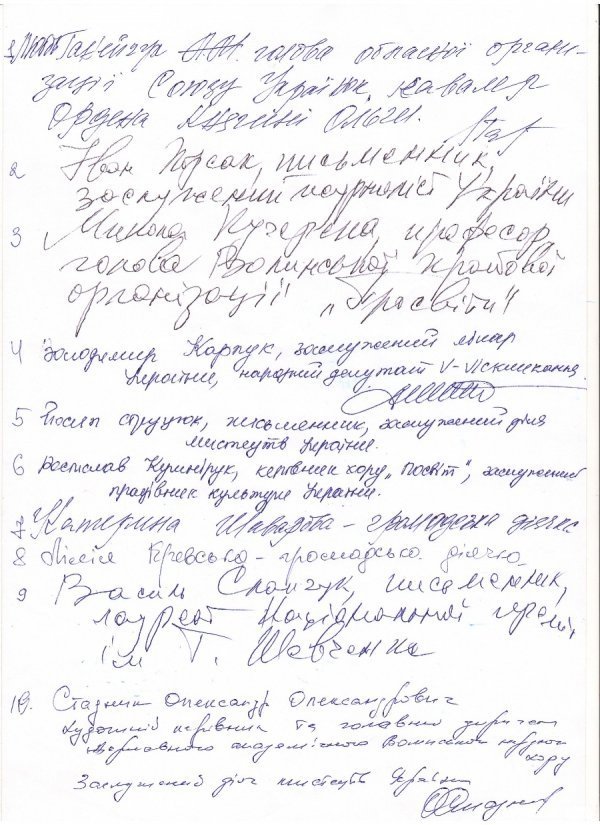 голова обласної органі-
зації Союзу Українок, кавалер
Ордена Княгині Ольги.
2 Іван Корсак, письменник,
заслужений журналіст України
3 Микола Кучерепа, професор,
голова Волинської крайової
організації "Просвіти"
4 Володимир Карпук, заслужений лікар
України, народний депутат V-VI скликання
5 Йосип Струцюк, письменник, заслужений діяч
мистецтв України.
6 Ростислав Кушнірук, керівник хору "Посвіт", заслужений
працівник культури України.
7 Катерина Шаварова - громадська діячка
8 - громадська діячка
9 Василь Слапчук, письменник,
лауреат Національної премії
ім Т. Шевченка
10. Стадник Олександр Олександрович
художній керівник та головний диригент
Державного академічного Волинського народного
хору
Заслужений діяч мистецтв України